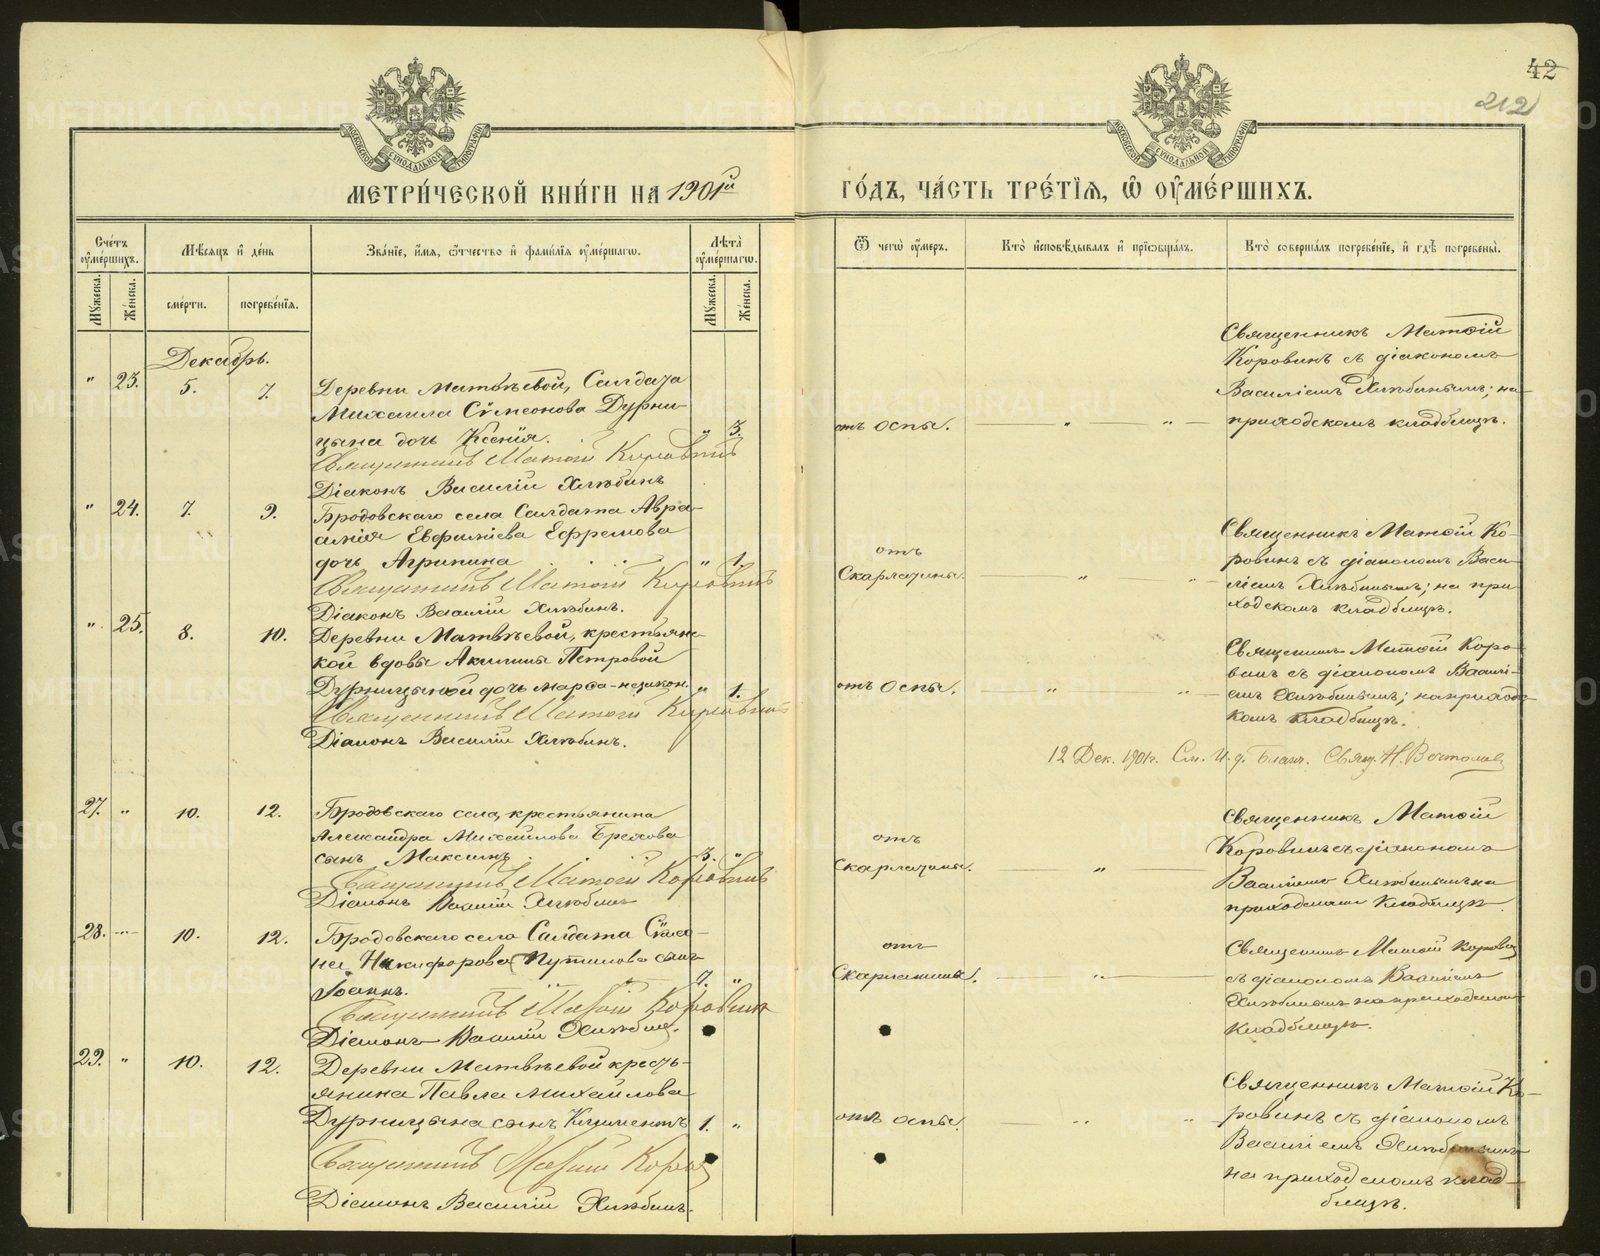 42
212
МЕТРИ́ЧЕСКОЙ КНИ́ГИ НА 1901й ГО́ДЪ, ЧА́СТЬ ТРЕ́ТІѦ, Ѡ ОУМЕ́РШИХЪ.
МОСКОВСКОЙ СѴНОДАЛЬНОЙ ТИПОГРАФІИ
МОСКОВСКОЙ СѴНОДАЛЬНОЙ ТИПОГРАФІИ
Сче́тъ оуме́ршихъ.
Мѣ́сяцъ и де́нь
Зва́нїе, и́мя, о́тчество и фами́лїя оуме́ршагѡ.
Лѣ́та оуме́ршагѡ.
Ѿ чегѡ̀ оу́меръ.
Кто̀ исповѣ́дывалъ и прїобща́лъ.
Кто̀ соверша́лъ погребе́нїе, и гдѣ̀ погребены̀.
Мꙋ́жеска.
Же́нска.
сме́рти.
погребе́нїя.
Мꙋ́жеска.
Же́нска.
Декабрь.
" 23. 5. 7.
Деревни Матвѣевой, Салдата
Михаила Сѵмеонова Дурни-
цына дочь Ксенія. " 3.
Священникъ Матѳій Коровинъ
Діаконъ Василій Хлѣбинъ
отъ оспы. " "
Священникъ Матѳій
Коровинъ съ діакономъ
Василіемъ Хлѣбинымъ; на
приходскомъ кладбищѣ.
" 24. 7. 9.
Бродовскаго села Салдата Авра-
амія Евфиміева Ефремова
дочь Агрипина " 1.
Священникъ Матѳій Коровинъ
Діаконъ Василій Хлѣбинъ.
отъ
Скарлатины. " "
Священникъ Матѳій Ко-
ровинъ съ діакономъ Васи-
ліемъ Хлѣбинымъ; на при
ходскомъ кладбищѣ.
" 25. 8. 10.
Деревни Матвѣевой, крестьянс-
кой вдовы Акилины Петровой
Дурницыной дочь Марѳа-незакон. " 1.
Священникъ Матѳій Коровинъ
Діаконъ Василій Хлѣбинъ.
отъ оспы. " "
Священникъ Матѳій Коро-
винъ съ діакономъ Василі-
емъ Хлѣбинымъ; на приходс-
комъ кладбищѣ.
12 Дек. 1901г. См. И. д. Благч. Свящ. Н.
27. " 10. 12.
Бродовскаго села, крестьянина
Александра Михайлова Брехова
сынъ Максимъ 3. "
Священникъ Матѳій Коровинъ
Діаконъ Василій Хлѣбинъ
отъ
Скарлатины. "
Священникъ Матѳій
Коровинъ съ діакономъ
Василіемъ Хлѣбинымъ на
приходскомъ кладбищѣ.
28. " 10. 12.
Бродовскаго села Салдата Сѵмео-
на Никифорова Путилова сынъ
Іоаннъ. 7. "
Священникъ Матѳій Коровинъ
Діаконъ Василій Хлѣбинъ.
отъ
Скарлатины. "
Священникъ Матѳій Коровинъ
съ діакономъ Василіемъ
Хлѣбинымъ на приходскомъ
кладбищѣ.
29. " 10. 12.
Деревни Матвѣевой кресть-
янина Павла Михайлова
Дурницына сынъ Климентъ 1. "
Священникъ Матѳій Коров
Діаконъ Василій Хлѣбинъ.
отъ оспы. " "
Священникъ Матѳій Ко-
ровинъ съ діакономъ
Василіемъ Хлѣбинымъ
на приходскомъ клад-
бищѣ.